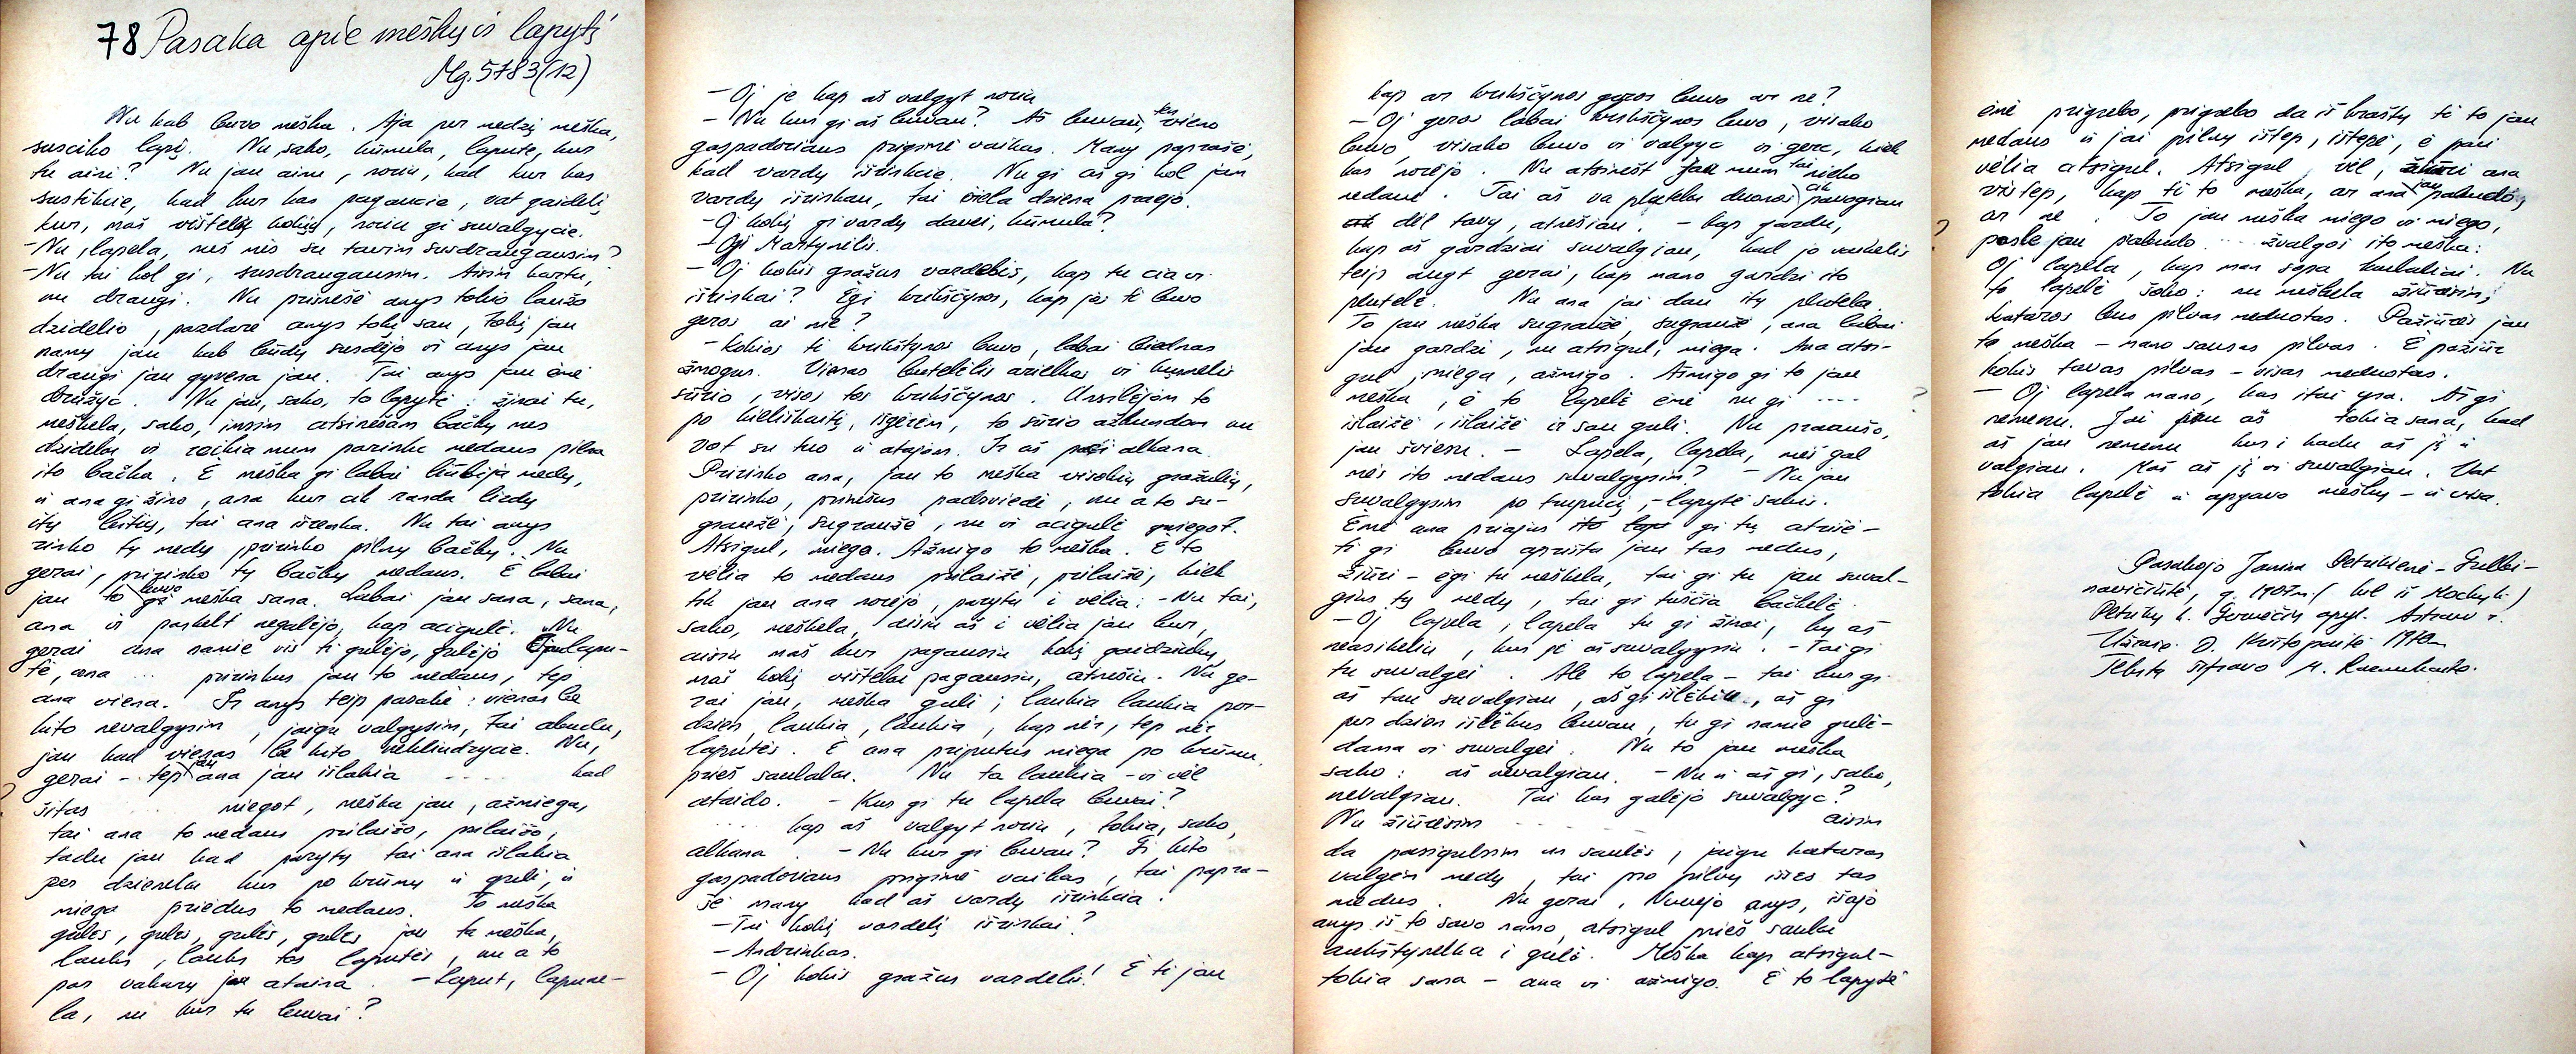 78 Pasaka apie mešką ir lapytį
Mg. 5783(12)
Nu kab buvo meška. Aja per medzį meška,
susciko lapį. Nu, sako, kūmula, lapute, kur
tu aini? Nu jau aine, noriu, kad kur kas
sustikcie, kad kur kas pagaucie, vat gaidelį
kur, maš vištelį kokią, noriu gi suvalgycie.
- Nu, lapela, meš mės su tavim susdraugausim?
- Nu tai kol gi, susdraugausim. Aisim kartu,
nu draugi. Nu prisnešė anys tokio laužo
dzidelio, pazdarė anys tokį sau, tokį jau
namų jau kab būdų susdėjo ir anys jau
draugi jau gyvena jau. Tai anys jau ėmė
družyc. Nu jau, sako, to lapytė: žinai tu,
meškela, sako, imsim atsinešam bačkų mes
dzidelu ir reikia mum pazinku medaus pilna
ito bačka. E meška gi labai liūbija medų,
ir ana gi žino, ana kur ak randa lizdų
itų bitių, tai ana išrenka. Nu tai anys
rinko tų medų, pririnko pilnų bačkų. Nu
gerai, pririnko tų bačkų medaus. E labai
jau to buvo gi meška sana. Labai jau sana, sana,
ana ir paskelt negalėjo, kap acigulė. Nu
gerai ana namie vis ti gulėjo, gulėjo O lapu-
tė, ana ... pririnkus jau to medaus, tep
ana viena. Ir anys teip pasakė: vienas be
kito nevalgysim, jaigu valgysim, tai abudu,
jau kad vienas be kito nekliudzycie. Nu,
gerai - tep jau ana jau išlakia .... kad
šitas miegot, meška jau, ažmiega,
tai ana to medaus prilaižo, prilaižo,
tadu jau kad parytų tai ana išlakia
per dzienelu kur po krūmų ir guli, ir
miega priėdus to medaus. To meška
gulės, gulės, gulės, gulės jau ta meška,
lauks, lauks tos laputės, nu a to
par vakarų jau ataina. - Laput, lapune-
la, nu kur tu buvai?
- Oj je kap aš valgyt noriu
- Nu kur gi aš buvau? Aš buvau, ten vieno
gaspadoriaus prigimė vaikas. Manį paprašė,
kad vardų išrinkcie. Nu gi aš gi kol jau
vardų išrinkau, tai ciela dziena praejo.
- Oj kokį gi vardų davei, kūmula?
- Ogi Martynėlis.
- Oj kokis gražus vardelis, kap tu cia ir
išrinkai? Ėgi krikščynos, kap jos ti buvo
geros ai ne?
- Kokios ti krikštynos buvo, labai biednas
žmogus. Vienas butelėlis arielkos ir kumelė
sūrio, visos tos krikščynos. Ussilėjom to
po kieliškaitį, išgėrėm, to sūrio ažkundom nu
vot su tuo ir atajom. Ir aš pati alkana.
Pririnko ana, jau to meška visokių gražulių,
pririnko, prinešus padsviedė, nu a to su-
graužė, sugraužė, nu ir acigulė miegot.
Atsigul, miega. Ažmigo to meška. E to
vėlia to medaus prilaižė, prilaižė, kiek
tik jau ana norėjo, parytu i vėlia: - Nu tai,
sako, meškela, aisiu aš i vėlia jau kur,
aisiu maš kur pagausiu kokį gaidziukų,
maš kokį vištelai pagausiu, atnešiu. Nu ge-
rai jau, meška guli; laukia laukia per-
dzien, laukia, laukia, kap nėr, tep nėr
laputės. E ana priputus miega po krūmu
prieš saulalu. Nu ta laukia - ir vėl
ataido. - Kur gi tu lapela buvai?
.... kap aš valgyt noriu, tokia, sako,
alkana. - Nu kur gi buvau? Ti kito
gaspadoriaus prigimė vaikas, tai papra-
šė manį kad aš vardų išrinkcia.
- Tai kokį vardelį išrinkai?
- Andriukas.
- Oj kokis gražus vardelis! E ti jau
kap ar krikščynos geros buvo ar ne?
- Oj geros labai krikščynos buvo, visako
buvo, visako buvo ir valgyc ir gerc, kiek
kas norėjo. Nu atsinešt jau mum tai nieko
nedavė. Tai aš va plutelu duonos ak pavogiau
dėl tavį, atnešiau. - Kap gardu,
kap aš gardziai suvalgiau, kad jo vaikelis
teip augt gerai, kap mano gardzi ito
plutelė. Nu ana jai dau itų plutelu.
To jau meška sugraužė, sugraužė, ana labai
jau gardzi, nu atsigul, miega. Ana atsi-
gul, miega, ažmigo. Ažmigo gi to jau
meška, ė to lapelė ėmė nu gi ....
islaižė, islaižė ir sau guli. Nu praaušo,
jau šviesu. - Lapela, lapela, meš gal
mės ito medaus suvalgysim? - Nu jau
suvalgysim po truputį, - lapytė sako.
Ėmė ana priajus ito gi tų atrišė -
ti gi buvo aprišta jau tas medus,
žiūri - ėgi tu meškela, tai gi tu jau suval-
gius tų medų, tai gi tuščia bačkelė.
- Oj lapela, lapela tu gi žinai, ky aš
neasikeliu, kur jį aš suvalgysiu. - Tai gi
tu suvalgei. Ale to lapela - tai kur gi
aš tau suvalgiau, aš gi išlėkiu, aš gi
per dzien išlėkus buvau, tu gi namie gulė-
dama ir suvalgei. Nu to jau meška
sako: aš nevalgiau. - Nu ir aš gi, sako,
nevalgiau. Tai kas galėjo suvalgyc?
Nu žiūrėsim .... aisim
da pasigulsim nu saulės, jaigu kataras
valgėm medų, tai pro pilvų išeis tas
medus. Nu gerai, Nuvejo anys, išajo
anys iš to savo namo, atsigul prieš saulai
aukštynelka i gulė. Meška kap atsigul -
tokia sana - ana ir ažmigo. E to lapytė
ėmė prigrebo, prigrebo da iš kraštų ti to jau
medaus ir jai pilvų ištep, ištepė, ė pati
vėlia atsigul. Atsigul, vėl, žiūri ana
vistep, kap ti to meška, ar ana jau pabudo,
ar ne. To jau meška miego ir miego,
posle jau pabudo ... žvalgos ito meška:
Oj lapela, kap man sopa kaulaliai. Nu
to lapelė sako: nu meškela žiūrėsim,
kataros bus pilvas meduotas. Pažiūrės jau
ta meška - mano sausas pilvas. E pažiūr
kokis tavas pilvas - visas meduotas.
- Oj lapela mano, kas itai yra. Aš gi
nemenu. Jai jau aš tokia sana, kad
aš jau nemenu kur i kadu aš jį ir
valgiau. Maš aš jį ir suvalgiau. Vat
tokia lapelė ir apgavo meškų - ir visa.
Pasakojo Janina Petrikienė - Gulbi-
navičiūtė, g. 1907m. (kil. iš Mockų k.)
Petrikų k. Gervėčių apyl. Astravo r.
Užrašė D. Krištopaitė 1970m
Tekstą šifravo M. Razmukaitė.